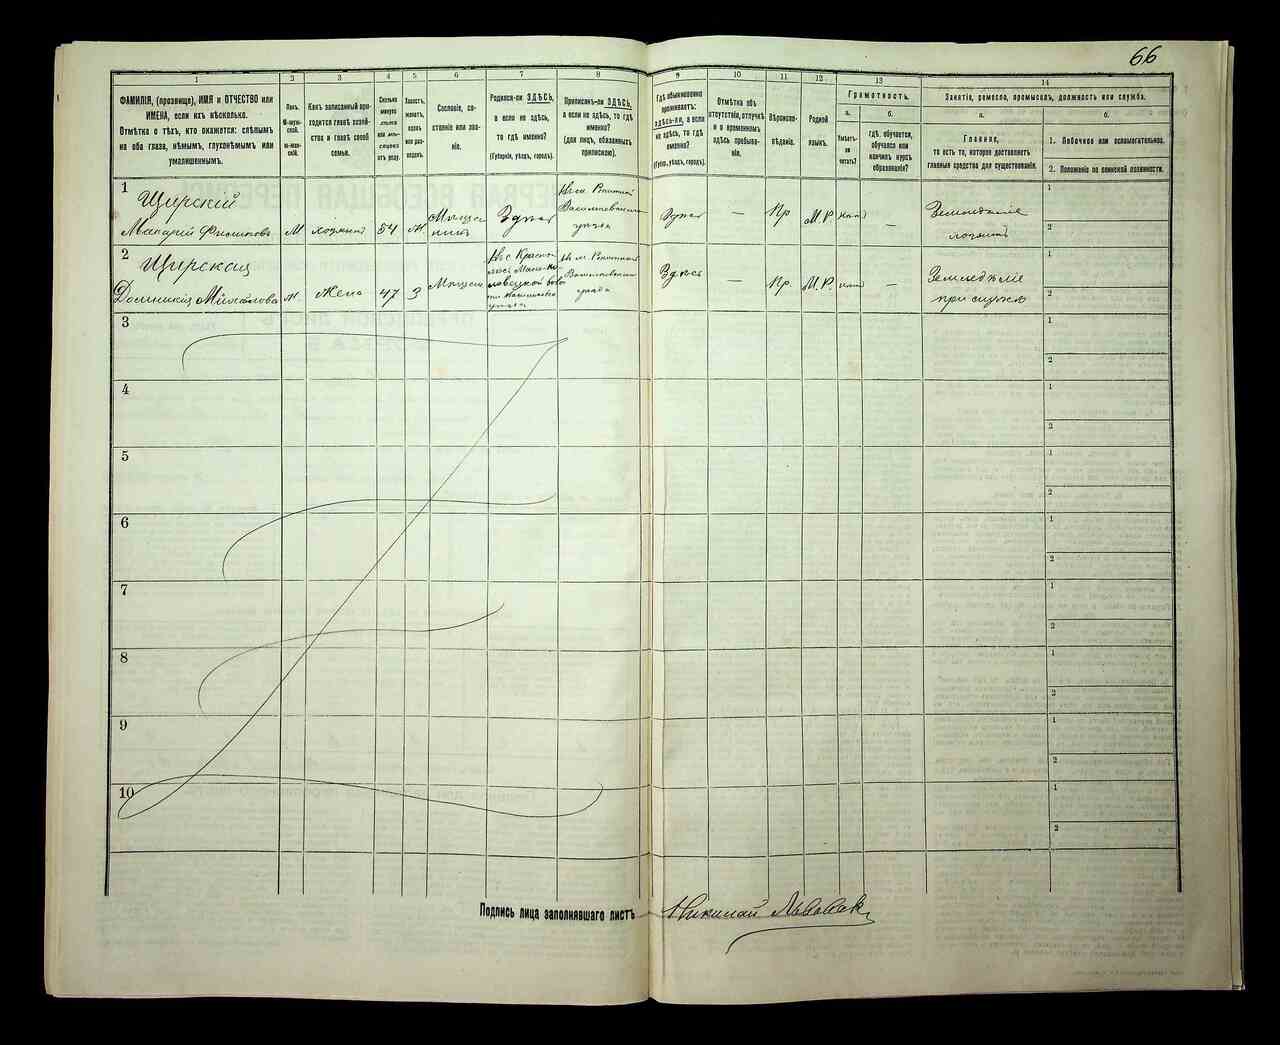 66
1
2
3
4
5
6
7
8
9
10
11
12
13
14
ФАМИЛІЯ, (прозвище), ИМЯ и ОТЧЕСТВО или
ИМЕНА, если ихъ нѣсколько.
Отмѣтка о тѣхъ, кто окажется: слѣпымъ
на оба глаза, нѣмымъ, глухонѣмымъ или
умалишеннымъ.
Полъ.
М-муж-
ской.
Ж-жен-
скій.
Какъ записанный при-
ходится главѣ хозяй-
ства и главѣ своей
семьи.
Сколько
минуло
лѣтъ
или мѣ-
сяцевъ
отъ роду.
Холостъ,
женатъ,
вдовъ
или раз-
веденъ.
Сословіе, со-
стояніе или зва-
ніе.
Родился-ли ЗДѢСЬ,
а если не здѣсь,
то гдѣ именно?
(Губернія, уѣздъ, городъ).
Приписанъ-ли ЗДѢСЬ,
а если не здѣсь, то гдѣ
именно?
(для лицъ, обязанныхъ
припискою).
Гдѣ обыкновенно
проживаетъ:
здѣсь-ли, а если
не здѣсь, то гдѣ
именно?
(Губер., уѣздъ, городъ).
Отмѣтка объ
отсутствіи, отлучкѣ
и о временномъ
здѣсь пребыва-
ніи.
Вѣроиспо-
вѣданіе.
Родной
языкъ.
Грамотность.
а.
б.
Умѣетъ-
ли
читать?
Гдѣ обучается,
обучался или
кончилъ курсъ
образованія?
Занятіе, ремесло, промыселъ, должность или служба.
а.
б.
Главное,
то есть то, которое доставляетъ
главныя средства для существованія.
1. Побочное или вспомогательное.
2. Положеніе по воинской повинности.
1
Щирскій
Макарій Филиповъ
М
хозяинъ
54
Ж
Мѣща
нинъ
Здѣсь
Васильковскаго
уѣзда
Здѣсь
—
Пр
М.Р.
нѣтъ
—
Земледѣліе
хозяинъ
1
2
2
Щирская
Домникія
Ж
Жена
47
З
Мѣщан
уѣзда
Здѣсь
—
Пр.
М.Р.
нѣтъ
—
Земледѣліе
при мужѣ
1
2
3
1
2
4
1
2
5
1
2
6
1
2
7
1
2
8
1
2
9
1
2
10
1
2
Подпись лица заполнявшаго листъ
Николай